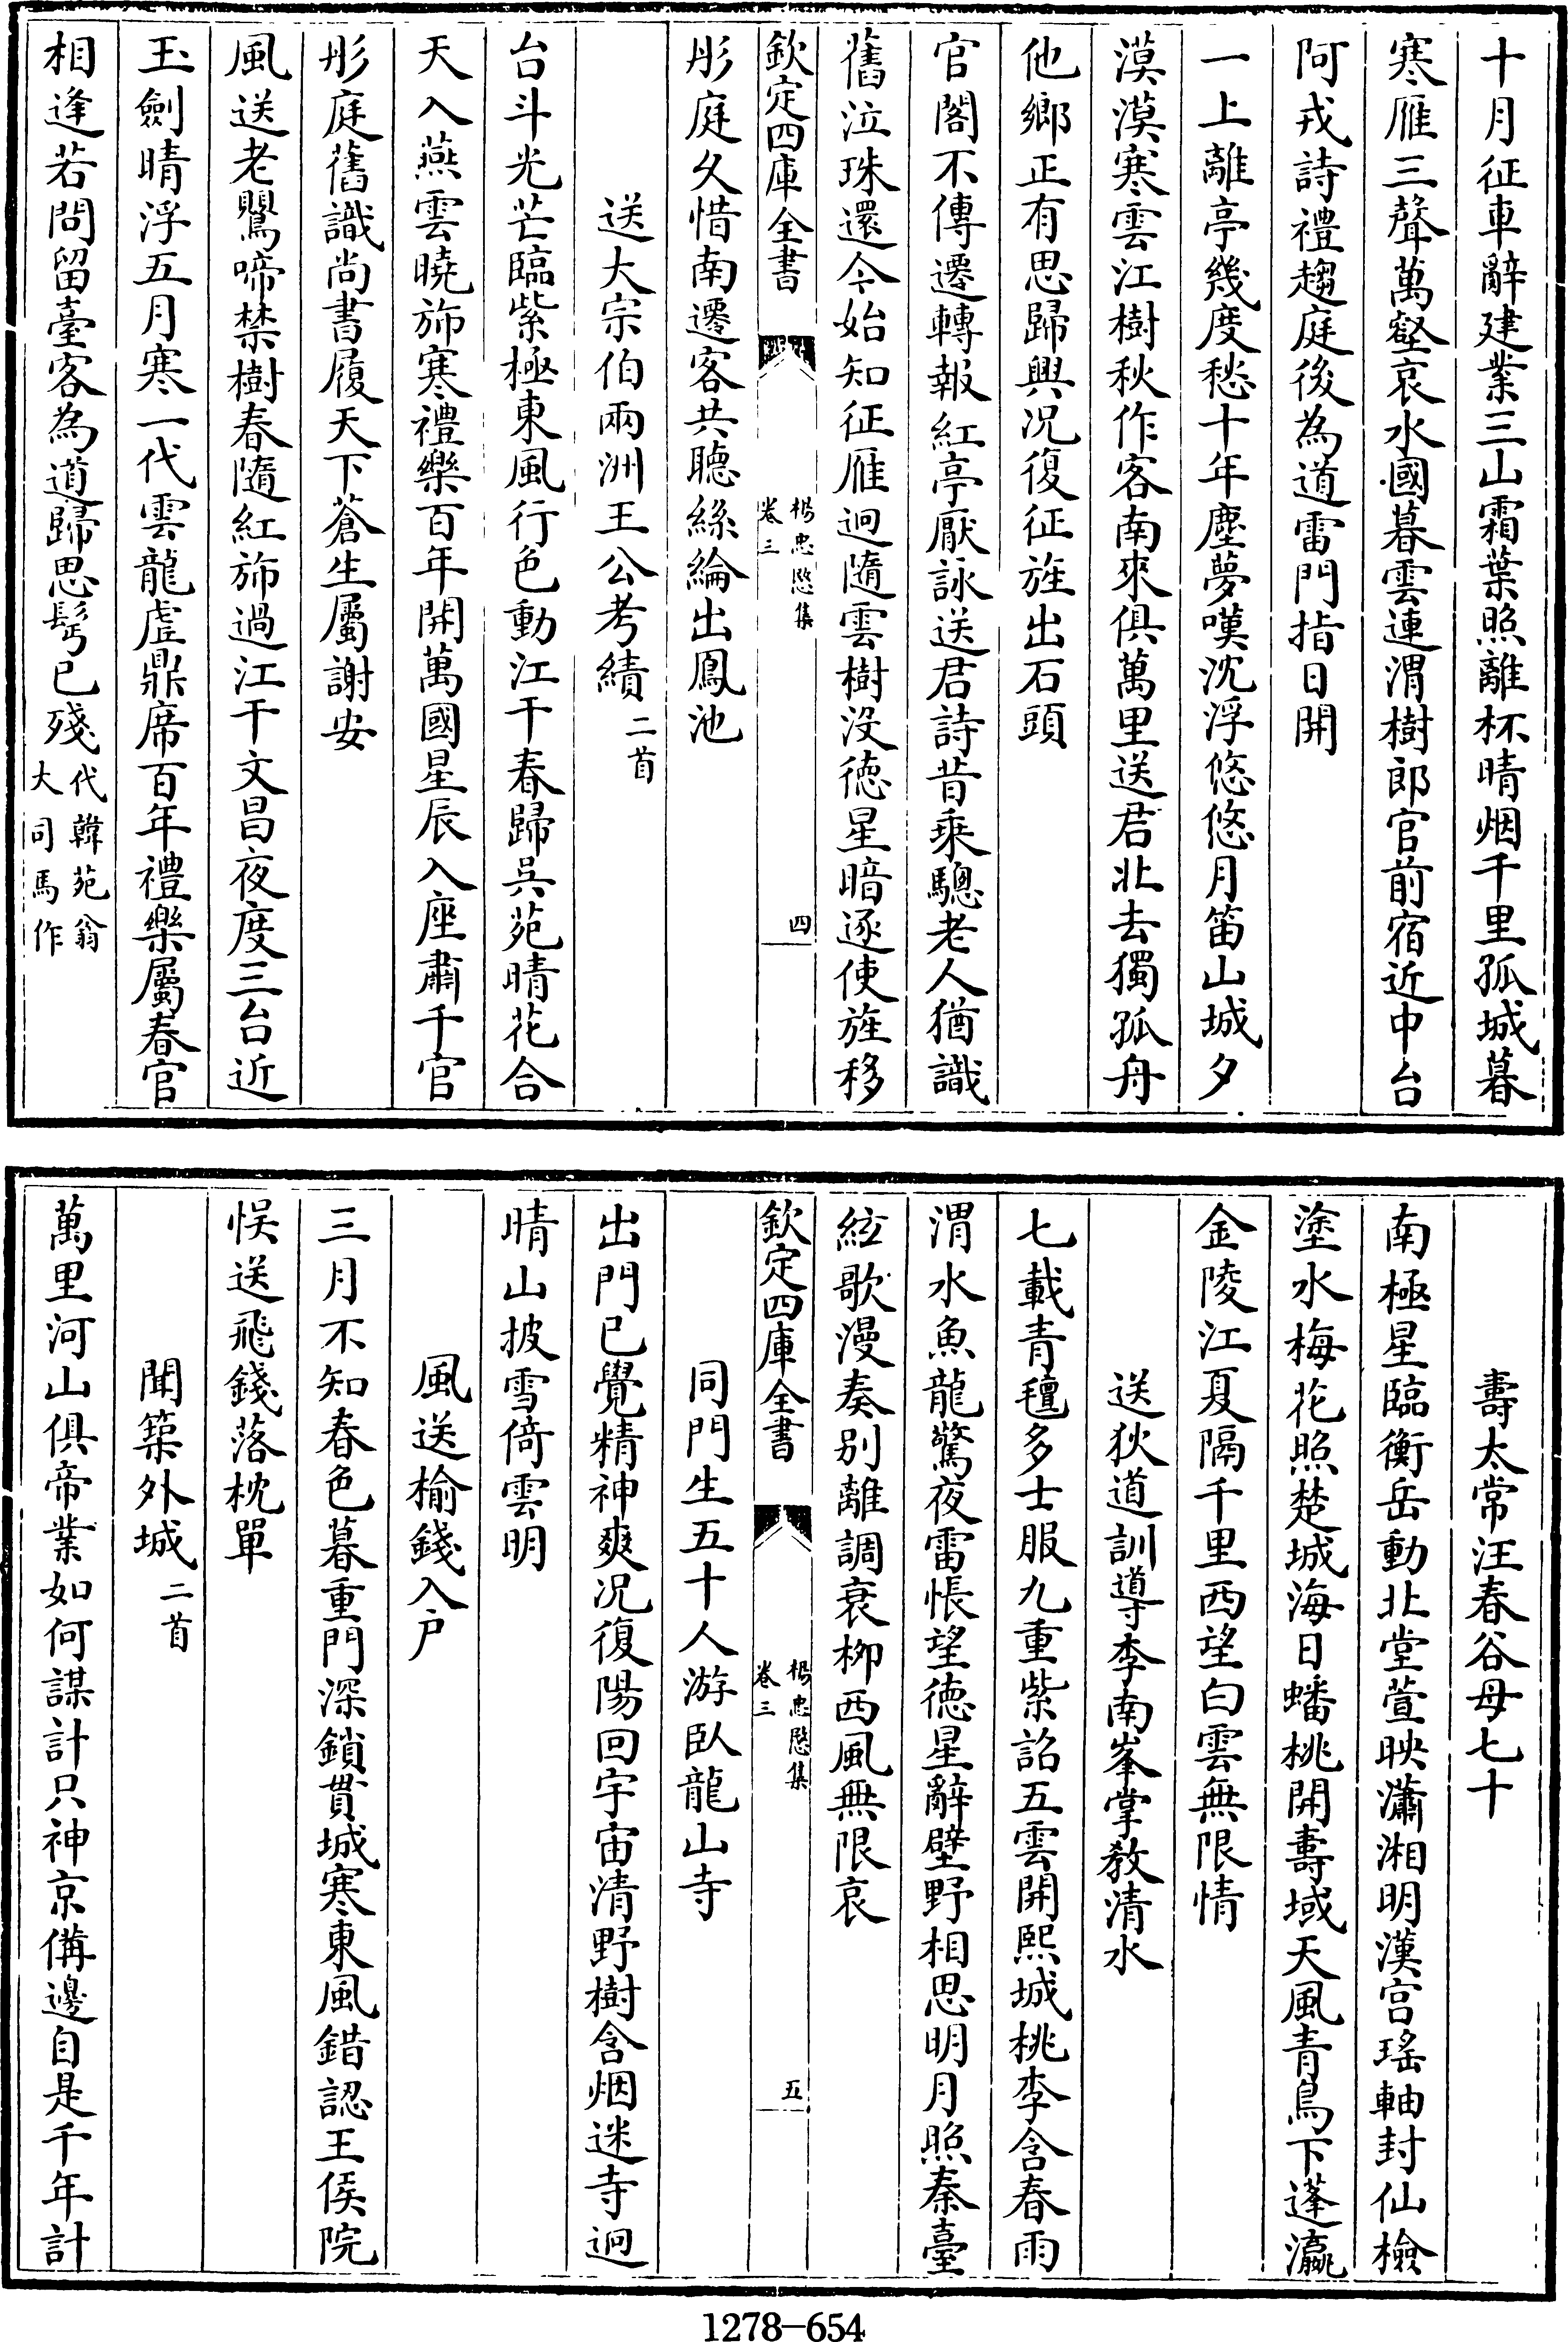 十月征車辭建業三山霜葉照離杯晴烟千里孤城暮
寒雁三聲萬壑哀水國暮雲連渭樹郎官前宿近中台
阿戎詩禮趨庭後為道雷門指日開
一上離亭幾度愁十年塵夢嘆沈浮悠悠月笛山城夕
漠漠寒雲江樹秋作客南來俱萬里送君北去獨孤舟
他鄉正有思歸興况復征旌出石頭
官閣不傳遷轉報紅亭厭詠送君詩昔乘驄老人猶識
舊泣珠還今始知征雁迥隨雲樹没德星暗逐使旌移
欽定四庫全書
楊忠愍集
卷三
四
彤庭久惜南遷客共聽絲綸出鳳池
送大宗伯兩洲王公考績二首
台斗光芒臨紫極東風行色動江干春歸吳苑晴花合
天入燕雲曉斾寒禮樂百年開萬國星辰入座肅千官
彤庭舊識尚書履天下蒼生屬謝安
風送老鸎啼禁樹春隨紅斾過江干文昌夜度三台近
玉劍晴浮五月寒一代雲龍虚鼎席百年禮樂屬春官
相逢若問留臺客為道歸思髩已殘代韓苑翁大司馬作
壽太常汪春谷母七十
南極星臨衡岳動北堂萱映瀟湘明漢宫瑤軸封仙檢
塗水梅花照楚城海日蟠桃開壽域天風青鳥下蓬瀛
金陵江夏隔千里西望白雲無限情
送狄道訓導李南峯掌教清水
七載青氊多士服九重紫詔五雲開熙城桃李含春雨
渭水魚龍驚夜雷悵望德星辭壁野相思明月照秦臺
絃歌漫奏别離調衰柳西風無限哀
欽定四庫全書
楊忠愍集
卷三
五
同門生五十人游臥龍山寺
出門已覺精神爽况復陽回宇宙清野樹含烟迷寺迥
晴山披雪倚雲明
風送榆錢入户
三月不知春色暮重門深鎖貫城寒東風錯認王侯院
悮送飛錢落枕單
聞築外城二首
萬里河山俱帝業如何謀計只神京備邊自是千年計
1278—654